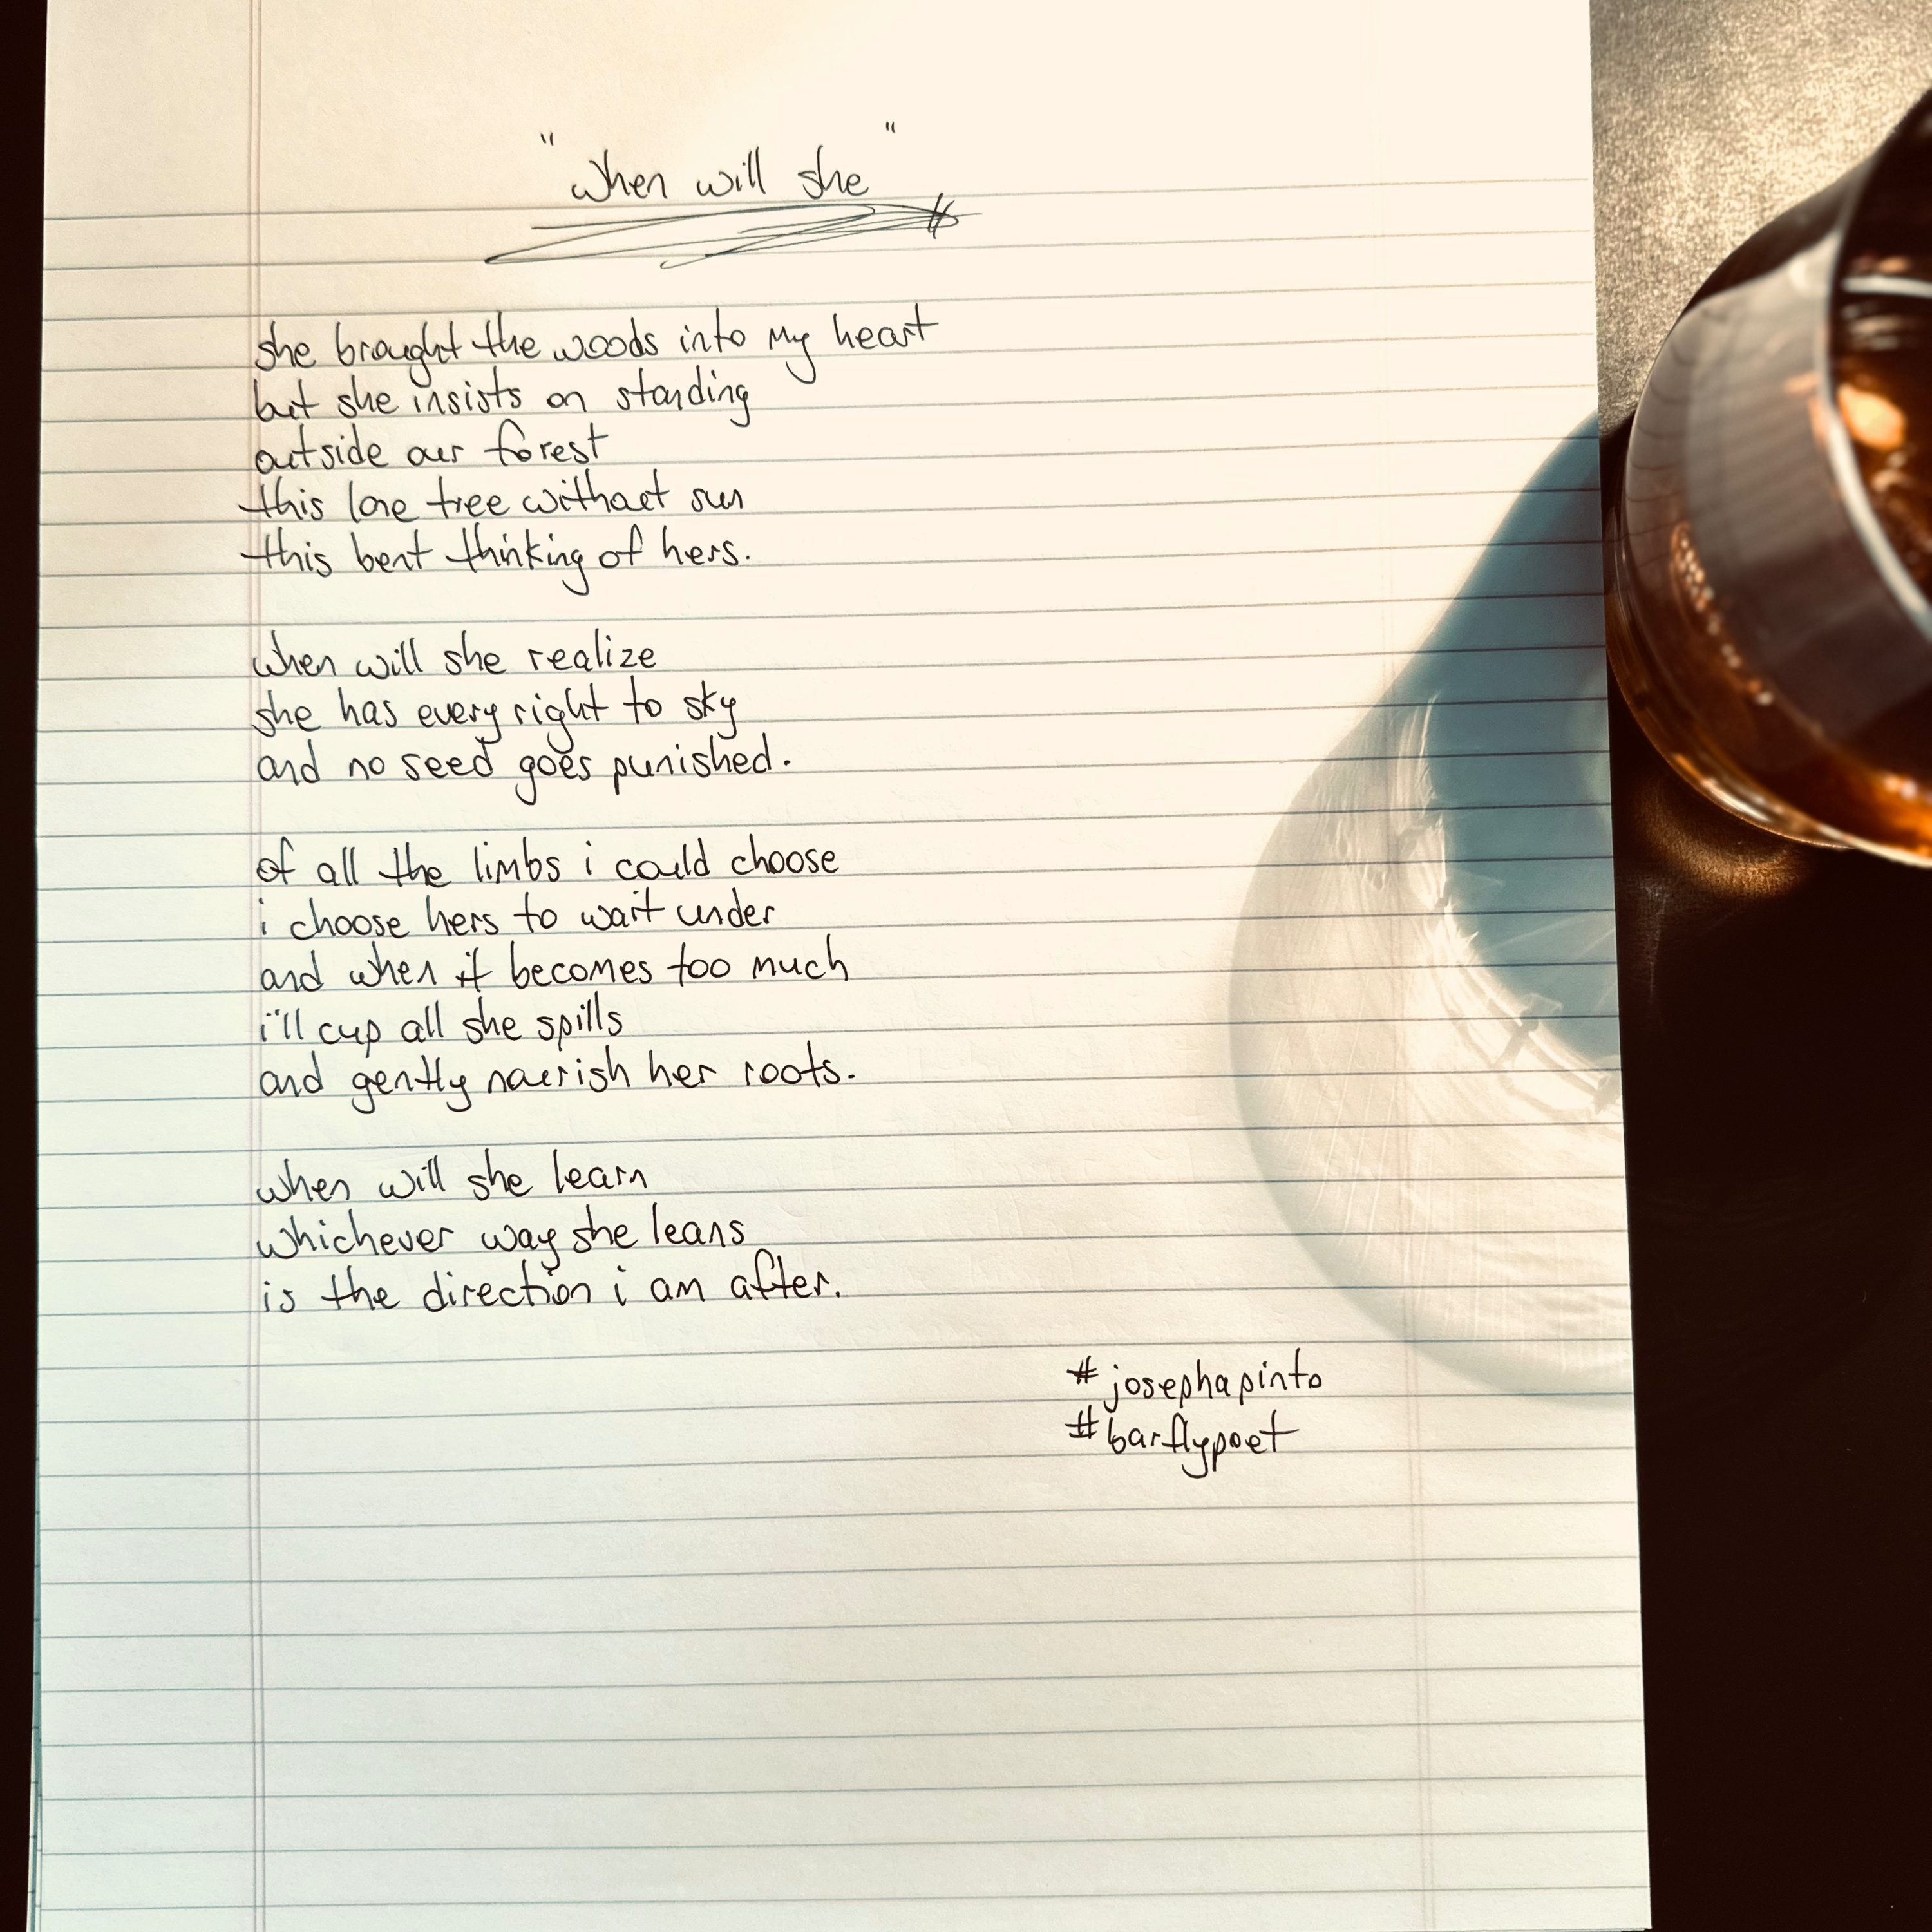 "when will she"
she brought the woods into my heart
but she insists on standing
outside our forest
this lone tree without sun
this bent thinking of hers.
when will she realize
she has every right to sky
and no seed goes punished.
of all the limbs i could choose
i choose hers to wait under
and when it becomes too much
i'll cup all she spills
and gently nourish her roots.
when will she learn
whichever way she leans
is the direction i am after.
#josephapinto
#barflypoet